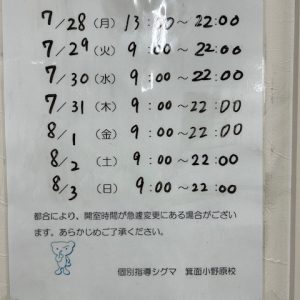 7/28（月）13:00～22:00
7/29（火）9:00～22:00
7/30（水）9:00～22:00
7/31（木）9:00～22:00
8/1（金）9:00～22:00
8/2（土）9:00～22:00
8/3（日）9:00～22:00
都合により、開室時間が急遽変更にある場合がござい
ます。あらかじめご了承ください。
個別指導シグマ　箕面小野原校